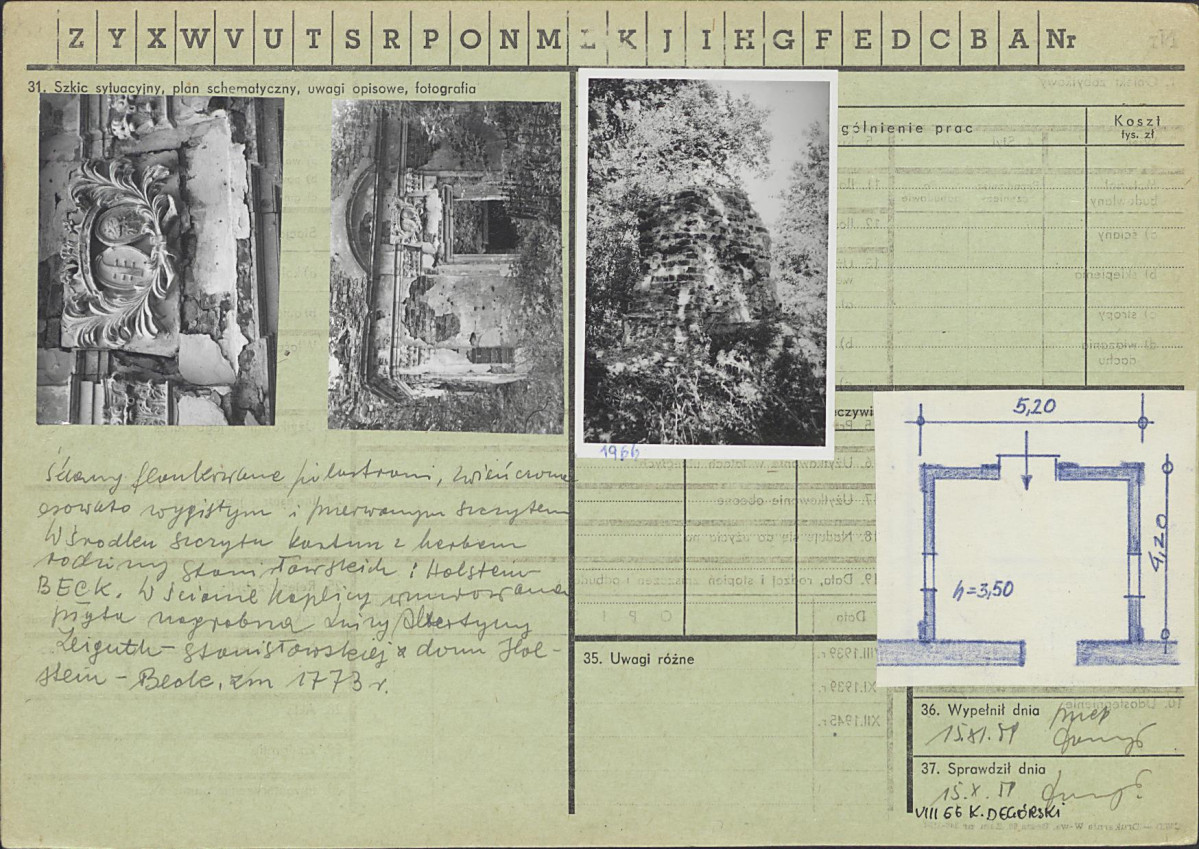 Z Y X W V U T S R P O N M L K J I H G F E D C B A Nr
31. Szkic sytuacyjny, plan schematyczny, uwagi opisowe, fotografia
gólnienie prac
Koszt
tys. zł
1966
eczywi
5,20
4,20
h=3,50
Ściany flankowane pilastrami, zwieńczone
esowato wygiętym i przerwanym szczytem
W środku szczytu kartusz z herbem
rodziny Stanisławskich i Holstein
BECK. W ścianie kaplicy wmurowana
płyta nagrobna Luizy Albertyny
Leiguth-Stanisławskiej z domu Hol-
stein - Beck, zm 1773 r.
35. Uwagi różne
36. Wypełnił dnia
37. Sprawdził dnia
15.X.59
VIII 66 K. DEGÓRSKI